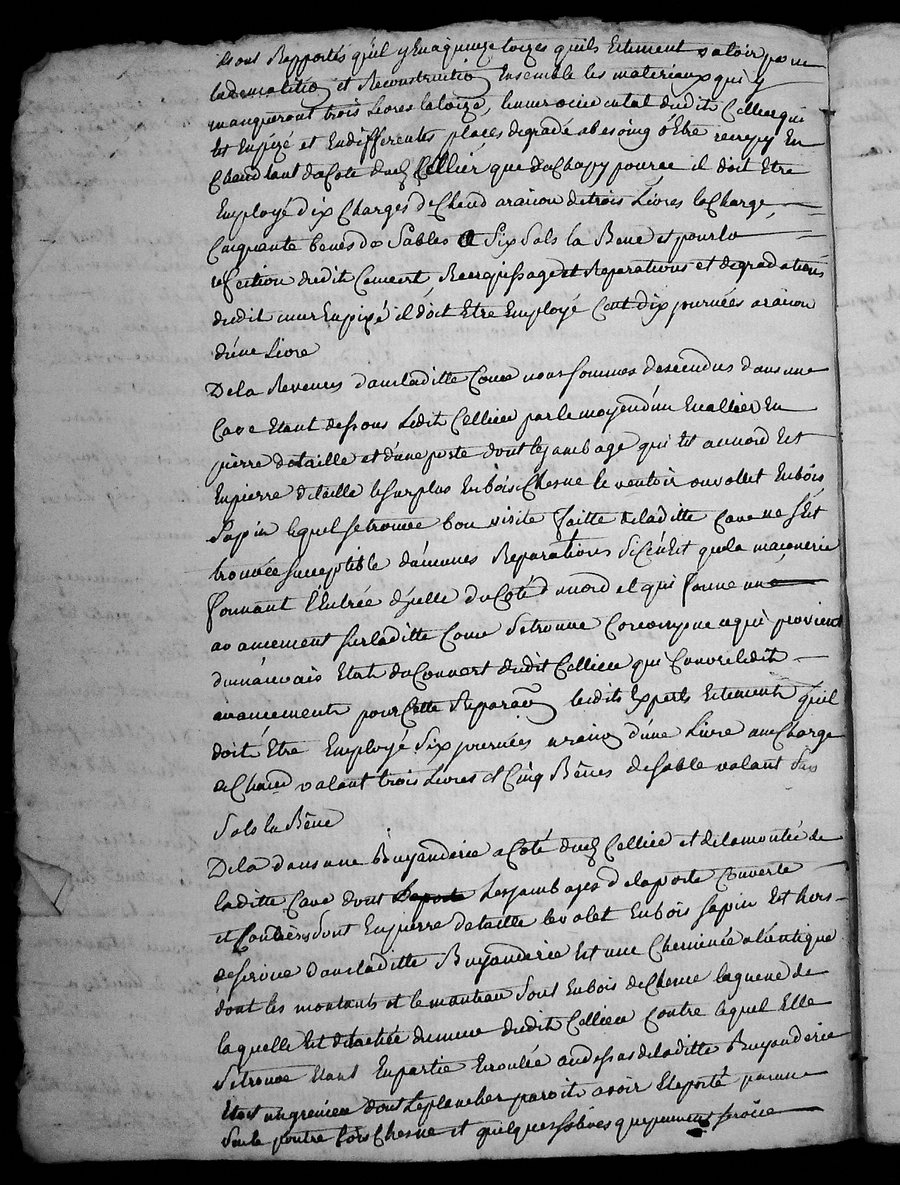 ils ont Rapportés quil y En a quinze toizes quils Estiment valoir pour
la demolition et Reconstruction Ensemble les materiaux qui y
manqueront trois Livres la toize, le mur ocidental dudit Cellier qui
Est En pizé et En differentes places degradé a besoing d'Etre recrepy En
Chaud tant du Coté dud Cellier que du Chapy pour ce il doit Etre
Employé dix Charges de Chaud a raison de trois Livres la Charge
Cinquante benes de Sables a Six Sols la Bene et pour la
refection dudit Couvert, Recrepissage et Reparations et degradations
dudit mur En pizé il doit Etre Employé Cent dix journées a raison
d'une Livre
De la Revenus dans laditte Cour nous sommes descendus dans une
Cave Etant dessous Ledit Cellier par le moyend'un Escallier En
pierre de taille et d'une porte dont le jambage qui Est au nord Est
En pierre de taille le surplus En bois Chesne le ventoir ou vollet En bois
Sapin lequel se trouve bon visite faitte de laditte Cave ne s'est
trouvée susceptible d'aucunes Reparations si ce n'Est que la maçonerie
formant l'Entrée d'jcelle du Coté du nord et qui forme un
avancement sur laditte Cour se trouve Corrompue ce qui provient
du mauvais Etat du Couvert dudit Cellier qui Couvre ledit
avancement pour Cette Reparaon lesdits Experts Estiment qu'il
doit Etre Employé Six journées a raison d'une Livre une Charge
de Chaud valant trois Livres et Cinq Bênes de Sable valant six
Sols la Bêne
De la dans une Buyanderie a Coté dud Cellier et de la montée de
laditte Cave dont Les jambages de la porte Couverte
et Coulière sont En pierre de taille le volet En bois Sapin Est hors
de service dans laditte Buyanderie Est une Cheminée a l'entique
dont les montants et le manteau sont En bois de Chene la queue de
laquelle Est detachée du mur dudit Cellier Contre lequel Elle
se trouve Etant En partie Ecroulée au dessus de laditte Buyanderie
Etoit un grenier dont le plancher paroit avoir Eté porté par une
seule poutre bois Chesne et quelques solives qui peuvent servir